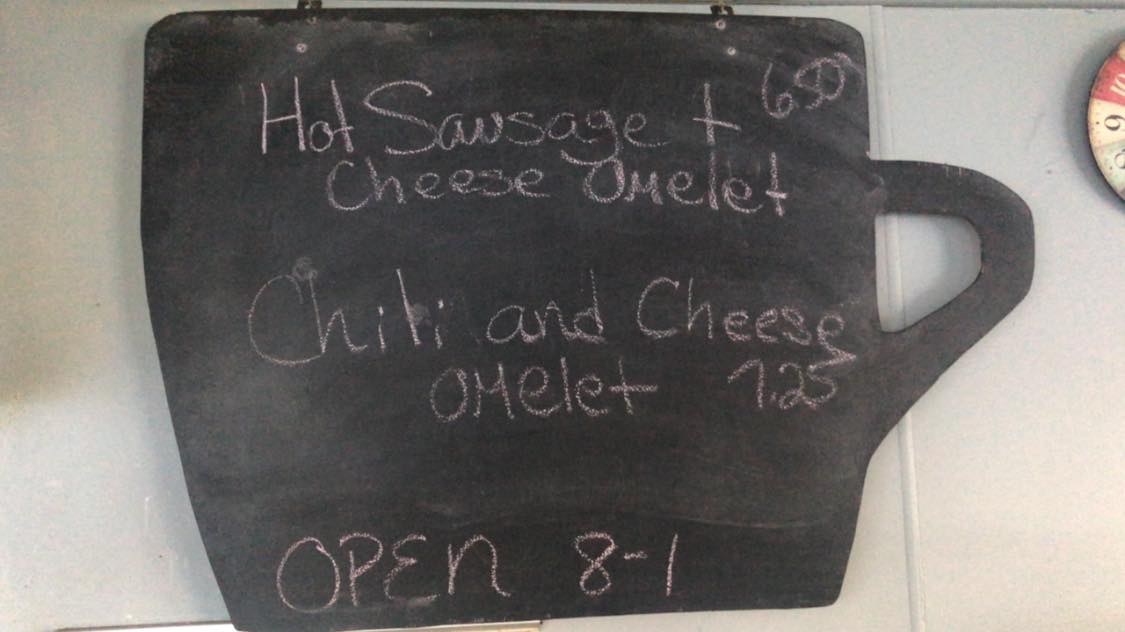 Hot Sausage + 6.50
Cheese Omelet
Chili and Cheese
omelet 7.25
OPEN 8-1
10
9
8